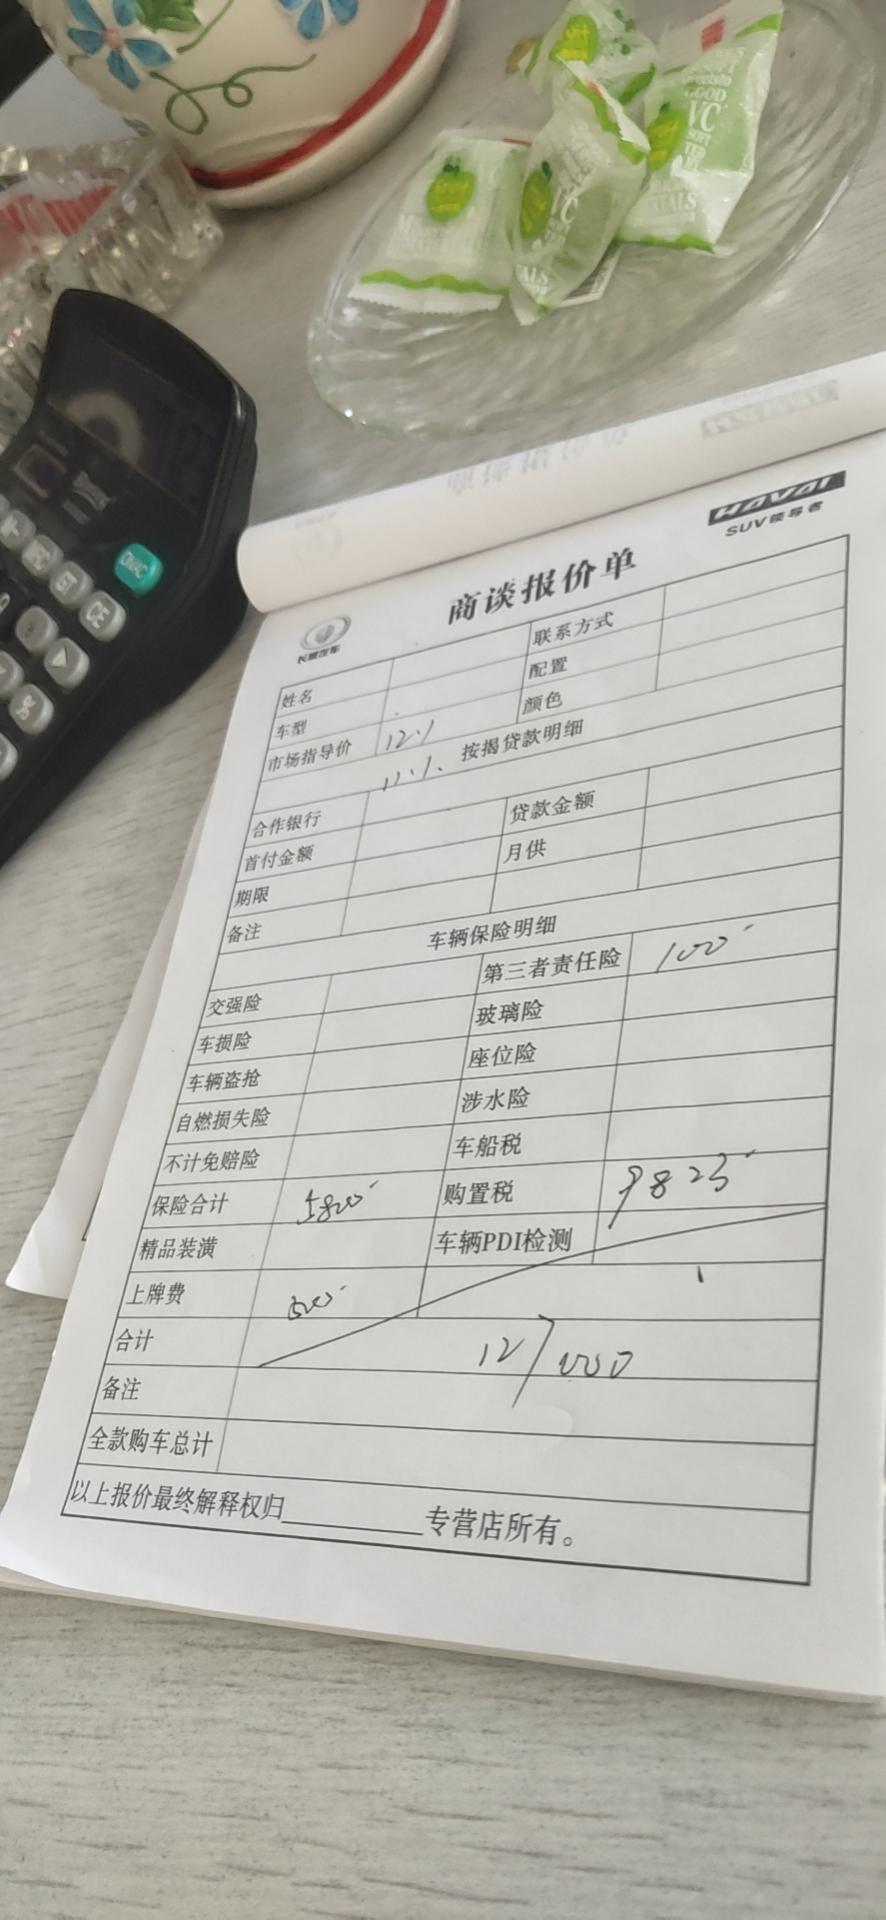 GOOD
VC
SOFT
fruit
VC
TALS
TALS
GT
CE
ON/AC
HAVAL
SUV领导者
长城汽车
商谈报价单
姓名 联系方式
车型 配置
市场指导价 12.1 颜色
11.1、 按揭贷款明细
合作银行 贷款金额
首付金额 月供
期限
备注
车辆保险明细
交强险 第三者责任险 100
车损险 玻璃险
车辆盗抢 座位险
自燃损失险 涉水险
不计免赔险 车船税
保险合计 5800 购置税 9823
精品装潢 车辆PDI检测
上牌费 500
合计 127000
备注
全款购车总计
以上报价最终解释权归________专营店所有。